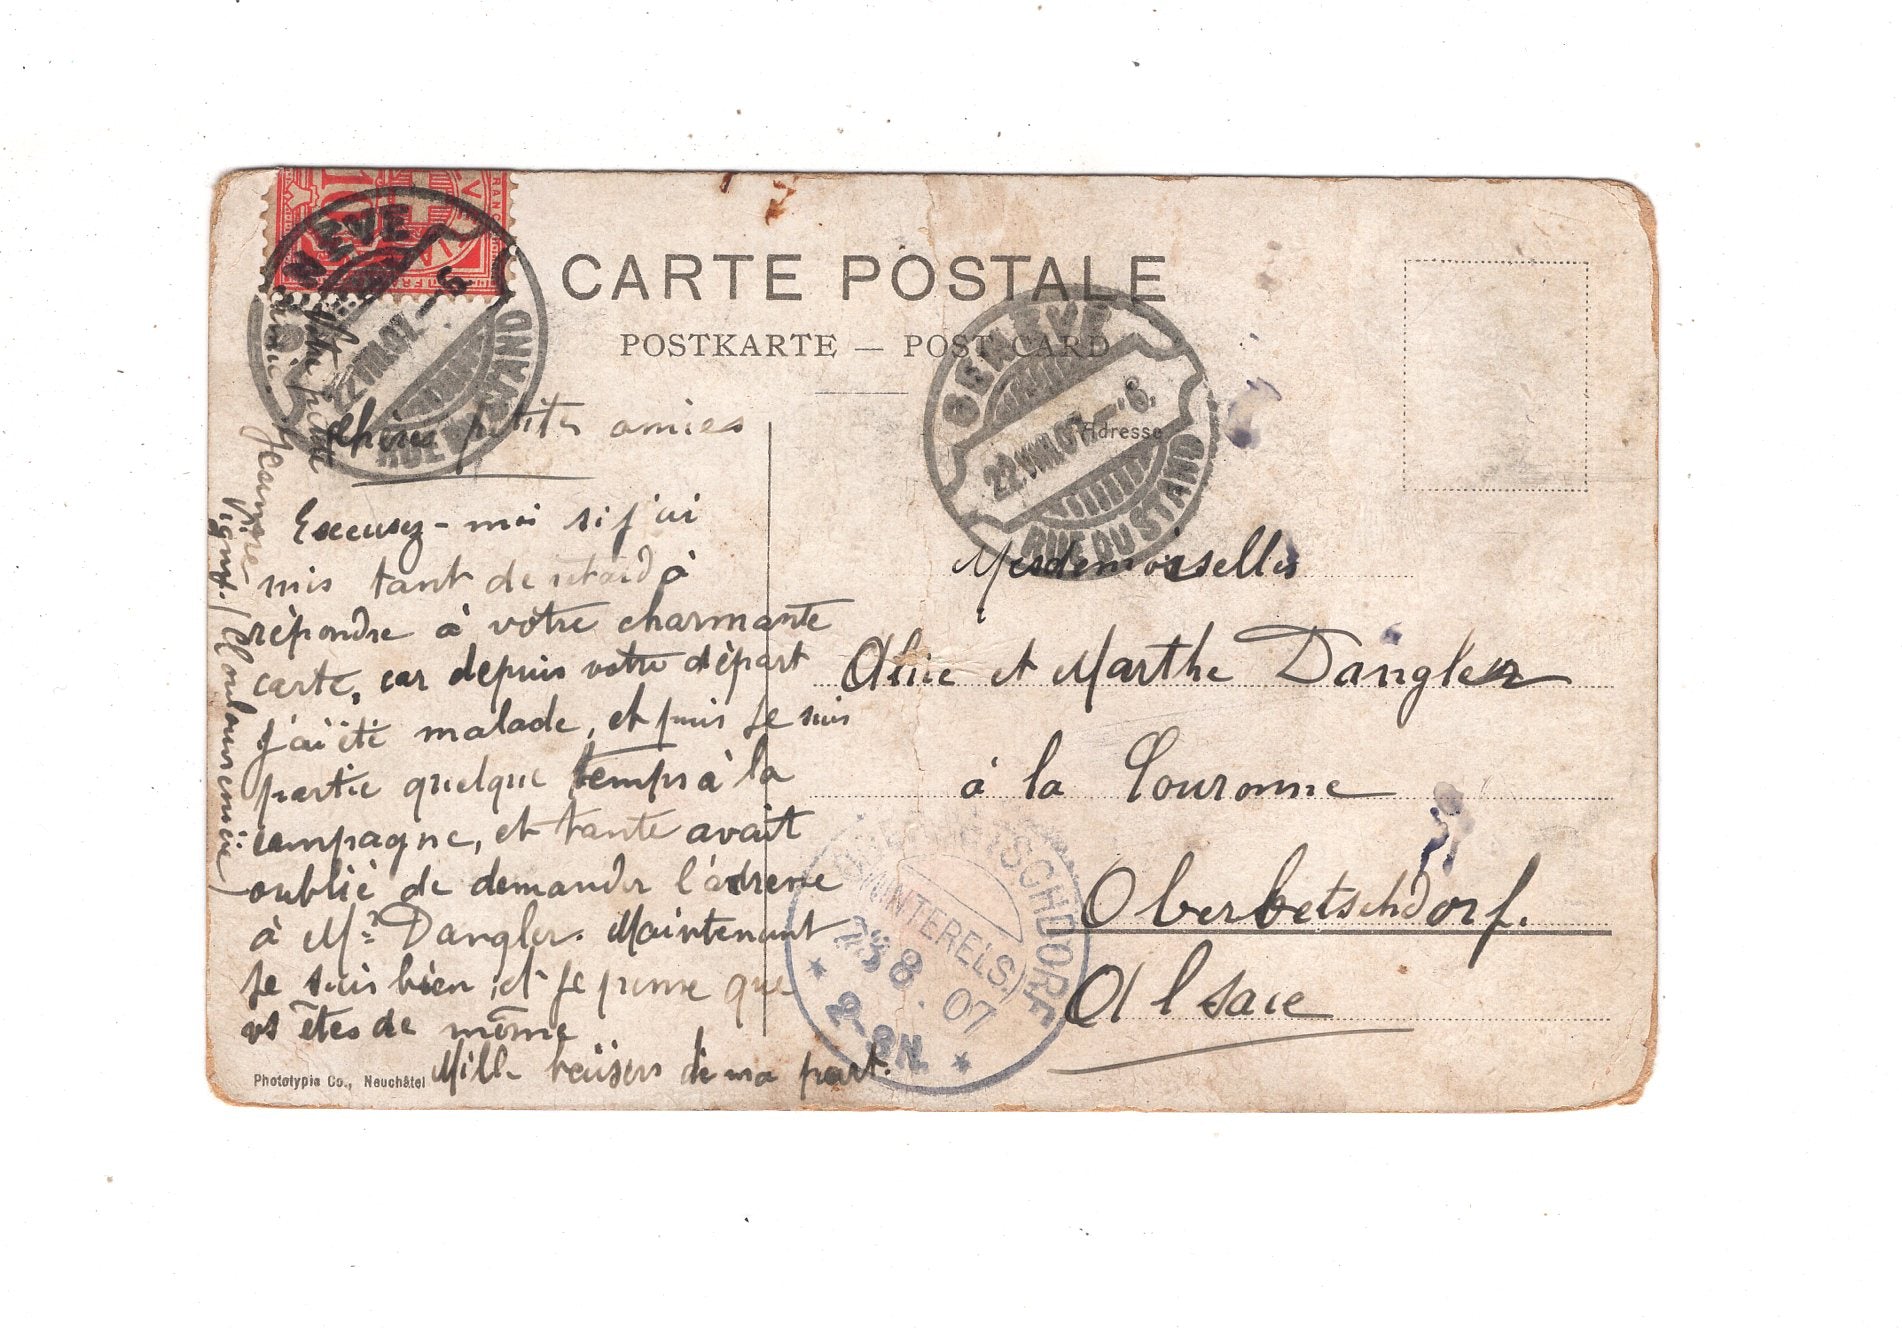 CARTE POSTALE
POSTKARTE — POST CARD
Adresse
GENÈVE
22.VIII.07.—.6.
RUE DU STAND
GENÈVE
22.VIII.07.—6
RUE DU STAND
10
FRANCO
Chères petites amies
Excusez-moi si j'ai
mis tant de retard à
répondre à votre charmante
carte, car depuis votre départ
j'ai été malade, et puis je suis
partie quelque temps à la
campagne, et tante avait
oublié de demander l'adresse
à Mr Dangler. Maintenant
je suis bien, et je pense que
vs êtes de même
Mille baisers de ma part.
Votre petite
amie
Jeanne
Mesdemoiselles
Alice et Marthe Dangler
à la Couronne
Oberbetschdorf.
Alsace
OBERBETSCHDORF
(UNTERELS.)
23 8. 07
2-3N.
Phototypie Co., Neuchâtel